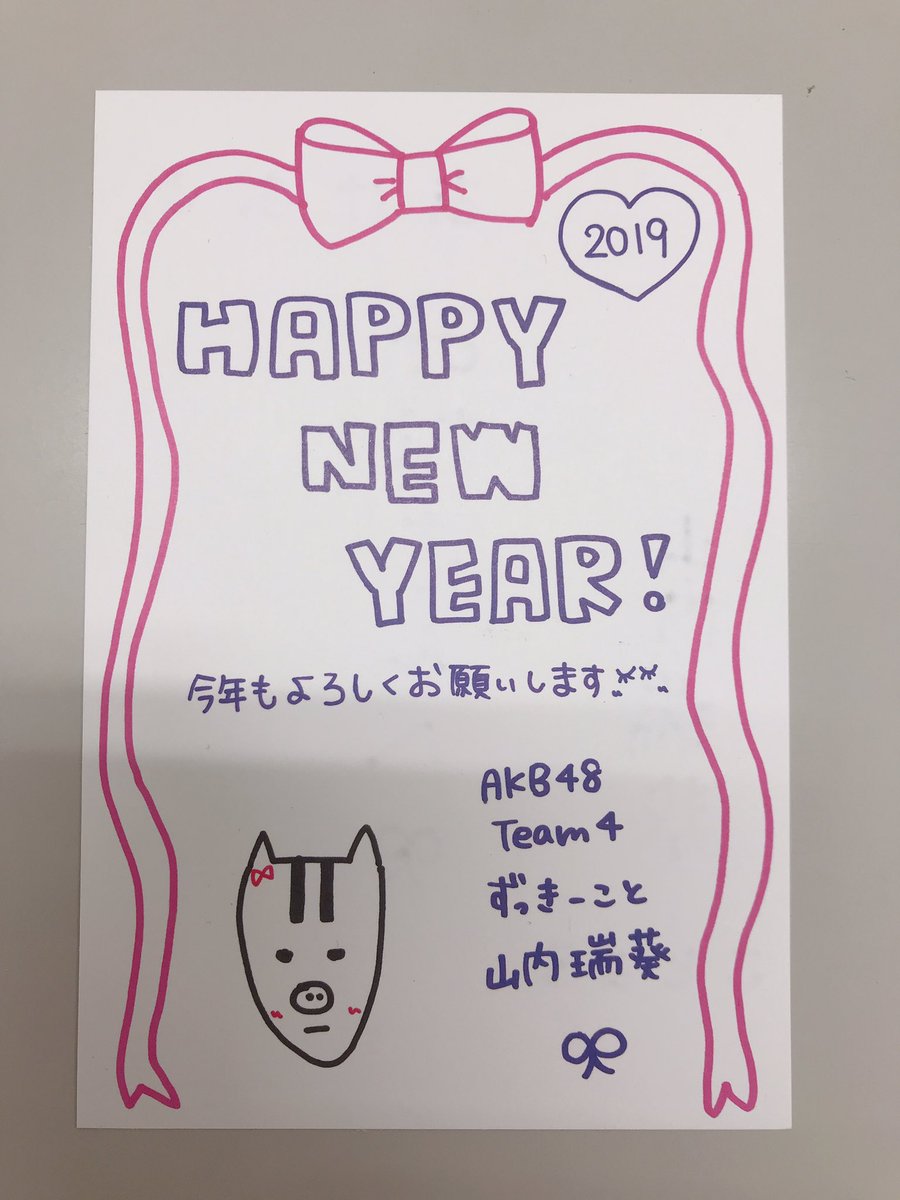 2019
HAPPY
NEW
YEAR!
今年もよろしくお願いします
AKB48
Team4
ずっきーこと
山内瑞葵